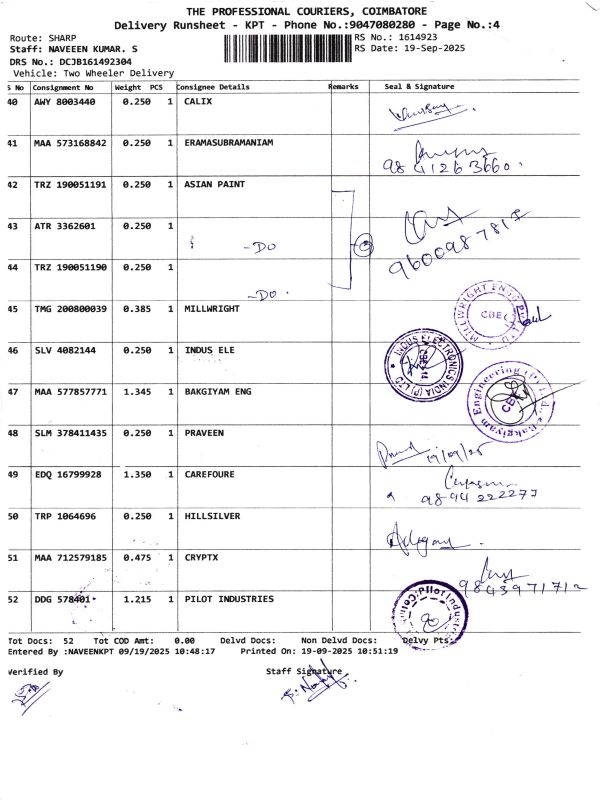 THE PROFESSIONAL COURIERS, COIMBATORE
Delivery Runsheet - KPT - Phone No.:9047080280 - Page No.:4
Route: SHARP
RS No.: 1614923
Staff: NAVEEEN KUMAR. S
RS Date: 19-Sep-2025
DRS No.: DCJB161492304
Vehicle: Two Wheeler Delivery
S No Consignment No Weight PCS Consignee Details Remarks Seal & Signature
40 AWY 8003440 0.250 1 CALIX
41 MAA 573168842 0.250 1 ERAMASUBRAMANIAM
9841263660.
42 TRZ 190051191 0.250 1 ASIAN PAINT
43 ATR 3362601 0.250 1 -DO
9600987817
44 TRZ 190051190 0.250 1 -DO.
45 TMG 200800039 0.385 1 MILLWRIGHT
MILLWRIGHT ENGG CBE
46 SLV 4082144 0.250 1 INDUS ELE
INDUS ELECTRONICS INDIA (P) LTD
47 MAA 577857771 1.345 1 BAKGIYAM ENG
Bakgiyam Engineering (P) Ltd. CBE
48 SLM 378411435 0.250 1 PRAVEEN
19/09/25
49 EDQ 16799928 1.350 1 CAREFOURE
9894222277
50 TRP 1064696 0.250 1 HILLSILVER
51 MAA 712579185 0.475 1 CRYPTX
9843971712
52 DDG 578401 1.215 1 PILOT INDUSTRIES
Pilot Industries
Tot Docs: 52 Tot COD Amt: 0.00 Delvd Docs: Non Delvd Docs: Delvy Pts:
Entered By :NAVEENKPT 09/19/2025 10:48:17 Printed On: 19-09-2025 10:51:19
Verified By Staff Signature